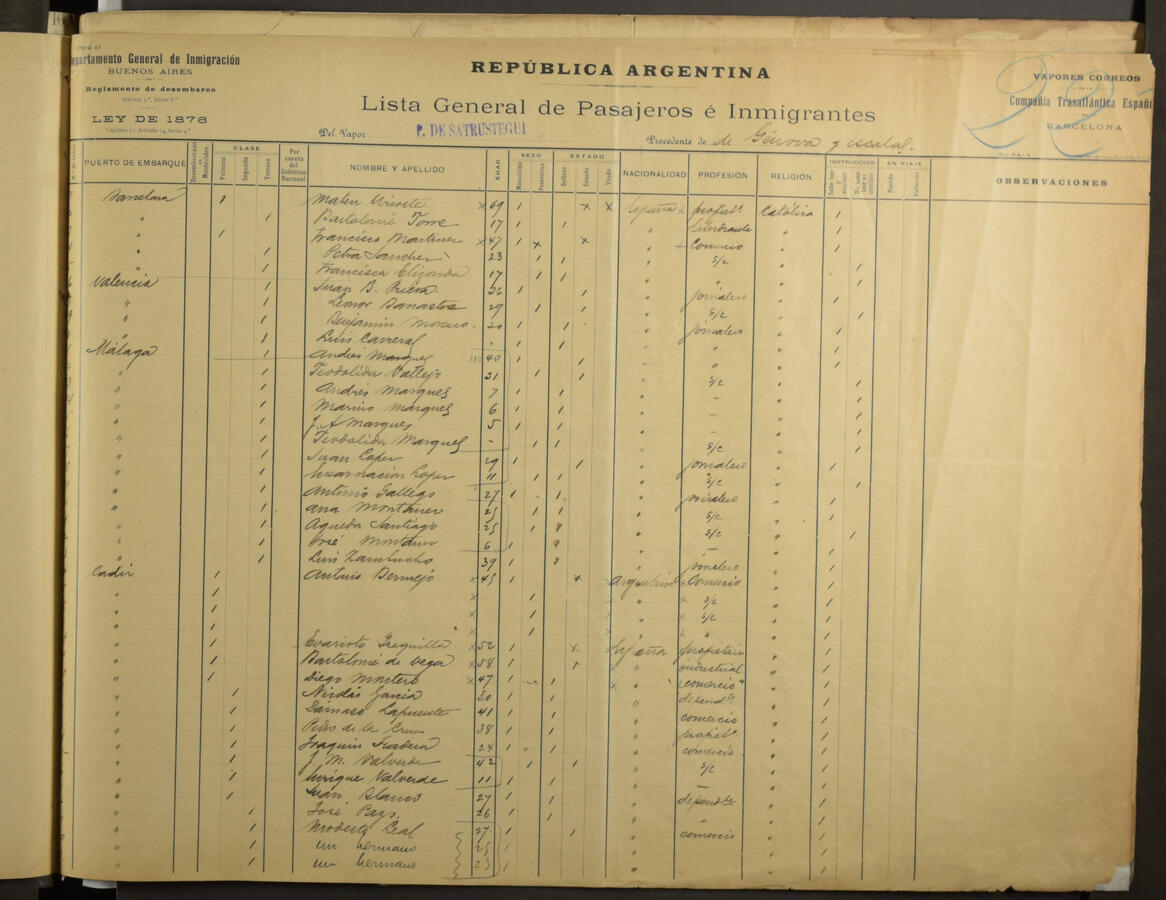 Para el
Departamento General de Inmigración
BUENOS AIRES
Reglamento de desembarco
Artículo 3º, Inciso 8º
LEY DE 1878
REPÚBLICA ARGENTINA
Lista General de Pasajeros é Inmigrantes
Del Vapor P. DE SATRUSTEGUI Procedente de de Génova y escalas.
VAPORES CORREOS
DE LA
Compañía Trasatlántica Españo
DE
BARCELONA
22
PUERTO DE EMBARQUE Desembarcado en Montevideo CLASE Primera Segunda Tercera Por cuenta del Gobierno Nacional NOMBRE Y APELLIDO EDAD SEXO Masculino Femenino ESTADO Soltero Casado Viudo NACIONALIDAD PROFESIÓN RELIGIÓN INSTRUCCIÓN Sabe leer y escribir No sabe leer ni escribir EN VIAJE Nacido Fallecido OBSERVACIONES
Barcelona 1 Mateu x 69 1 x x España propietº Católica 1
" 1 Bartolomé Torre 17 1 1 " " 1
" 1 Francisco Martinez x 47 1 x " Comercio " 1
" 1 Petra Sanchez 23 1 1 " s/c " 1
" 1 Francisca Elizonda 17 1 1 " " " 1
Valencia 1 Juan B. 36 1 1 " jornalero " 1
" 1 Leonor 29 1 1 " s/c " 1
" 1 Benjamin Moreno 20 1 1 " jornalero " 1
" 1 Luis Carreral " 1 1 " " " 1
Málaga 1 Andrés Marques 40 1 1 " " " 1
" 1 Teodolida Vallejo 31 1 1 " s/c " 1
" 1 Andrés Marques 7 1 1 " – " 1
" 1 Marino Marques 6 1 1 " – " 1
" 1 J. A Marques 5 1 1 " – " 1
" 1 Teodolida Marques - 1 1 " s/c " 1
" 1 Juan Lopez 29 1 1 " jornalero " 1
" 1 Encarnacion Lopez 11 1 1 " s/c " 1
" 1 Antonio Gallego 27 1 1 " jornalero " 1
" 1 Ana Montaner 25 1 1 " s/c " 1
" 1 Agueda Santiago 25 1 " s/c " 1
" 1 José Montaner 6 1 " – " 1
" 1 Luis Zambucho 39 1 " jornalero " 1
Cadiz 1 Antonio Bermejo x 45 1 x Argentina Comercio " 1
" 1 x 1 " s/c " 1
" 1 x 1 " s/c " 1
" 1 x 1 " " " 1
" 1 Evaristo x 52 1 x España propietario " 1
" 1 Bartolomé de Vega x 58 1 x " industrial " 1
" 1 Diego Montero x 47 1 1 " comercio " 1
" 1 Nicolás Garcia 20 1 1 " dependte " 1
" 1 Dámaso Lapuente 41 1 1 " comercio " 1
" 1 Pedro de la Cruz 38 1 1 " propietº " 1
" 1 Joaquin 24 1 1 " comercio " 1
" 1 J. M. Valverde 42 1 1 " s/c " 1
" 1 Enrique Valverde 11 1 1 " – " 1
" 1 Juan Blanco 27 1 1 " dependte " 1
" 1 José Pazs. 26 1 1 " " " 1
" 1 Modesto Leal 27 1 1 " comercio " 1
" 1 un hermano 25 1 " " 1
" 1 un hermano 23 1 " " 1